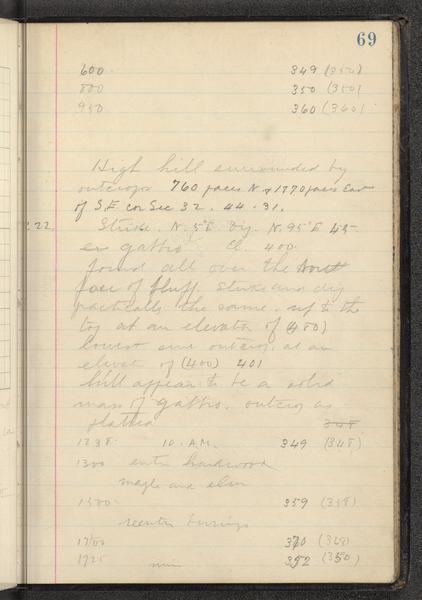 69
600 349 (350)
800 350 (350)
950 360 (360)
High hill surrounded by
outcrops 760 paces N & 1770 paces East
of S.E. cor Sec 32. 44. 31.
22. Strike. N. 5° E. Dip. N. 95° E 45
en gabbro El. 400.
found all over the
face of bluff. Strike and dip
practically the same. up to the
top at an elevation of (480)
lowest outcrop. at an
elevat of (400) 401
hill appears to be a solid
mass of gabbro. outcrop as
348
1238 10. A.M. 349 (348)
1300 enter hardwood
maple and elm
1500 359 (358)
reenter burnings
1700 370 (368)
1925 352 (350)